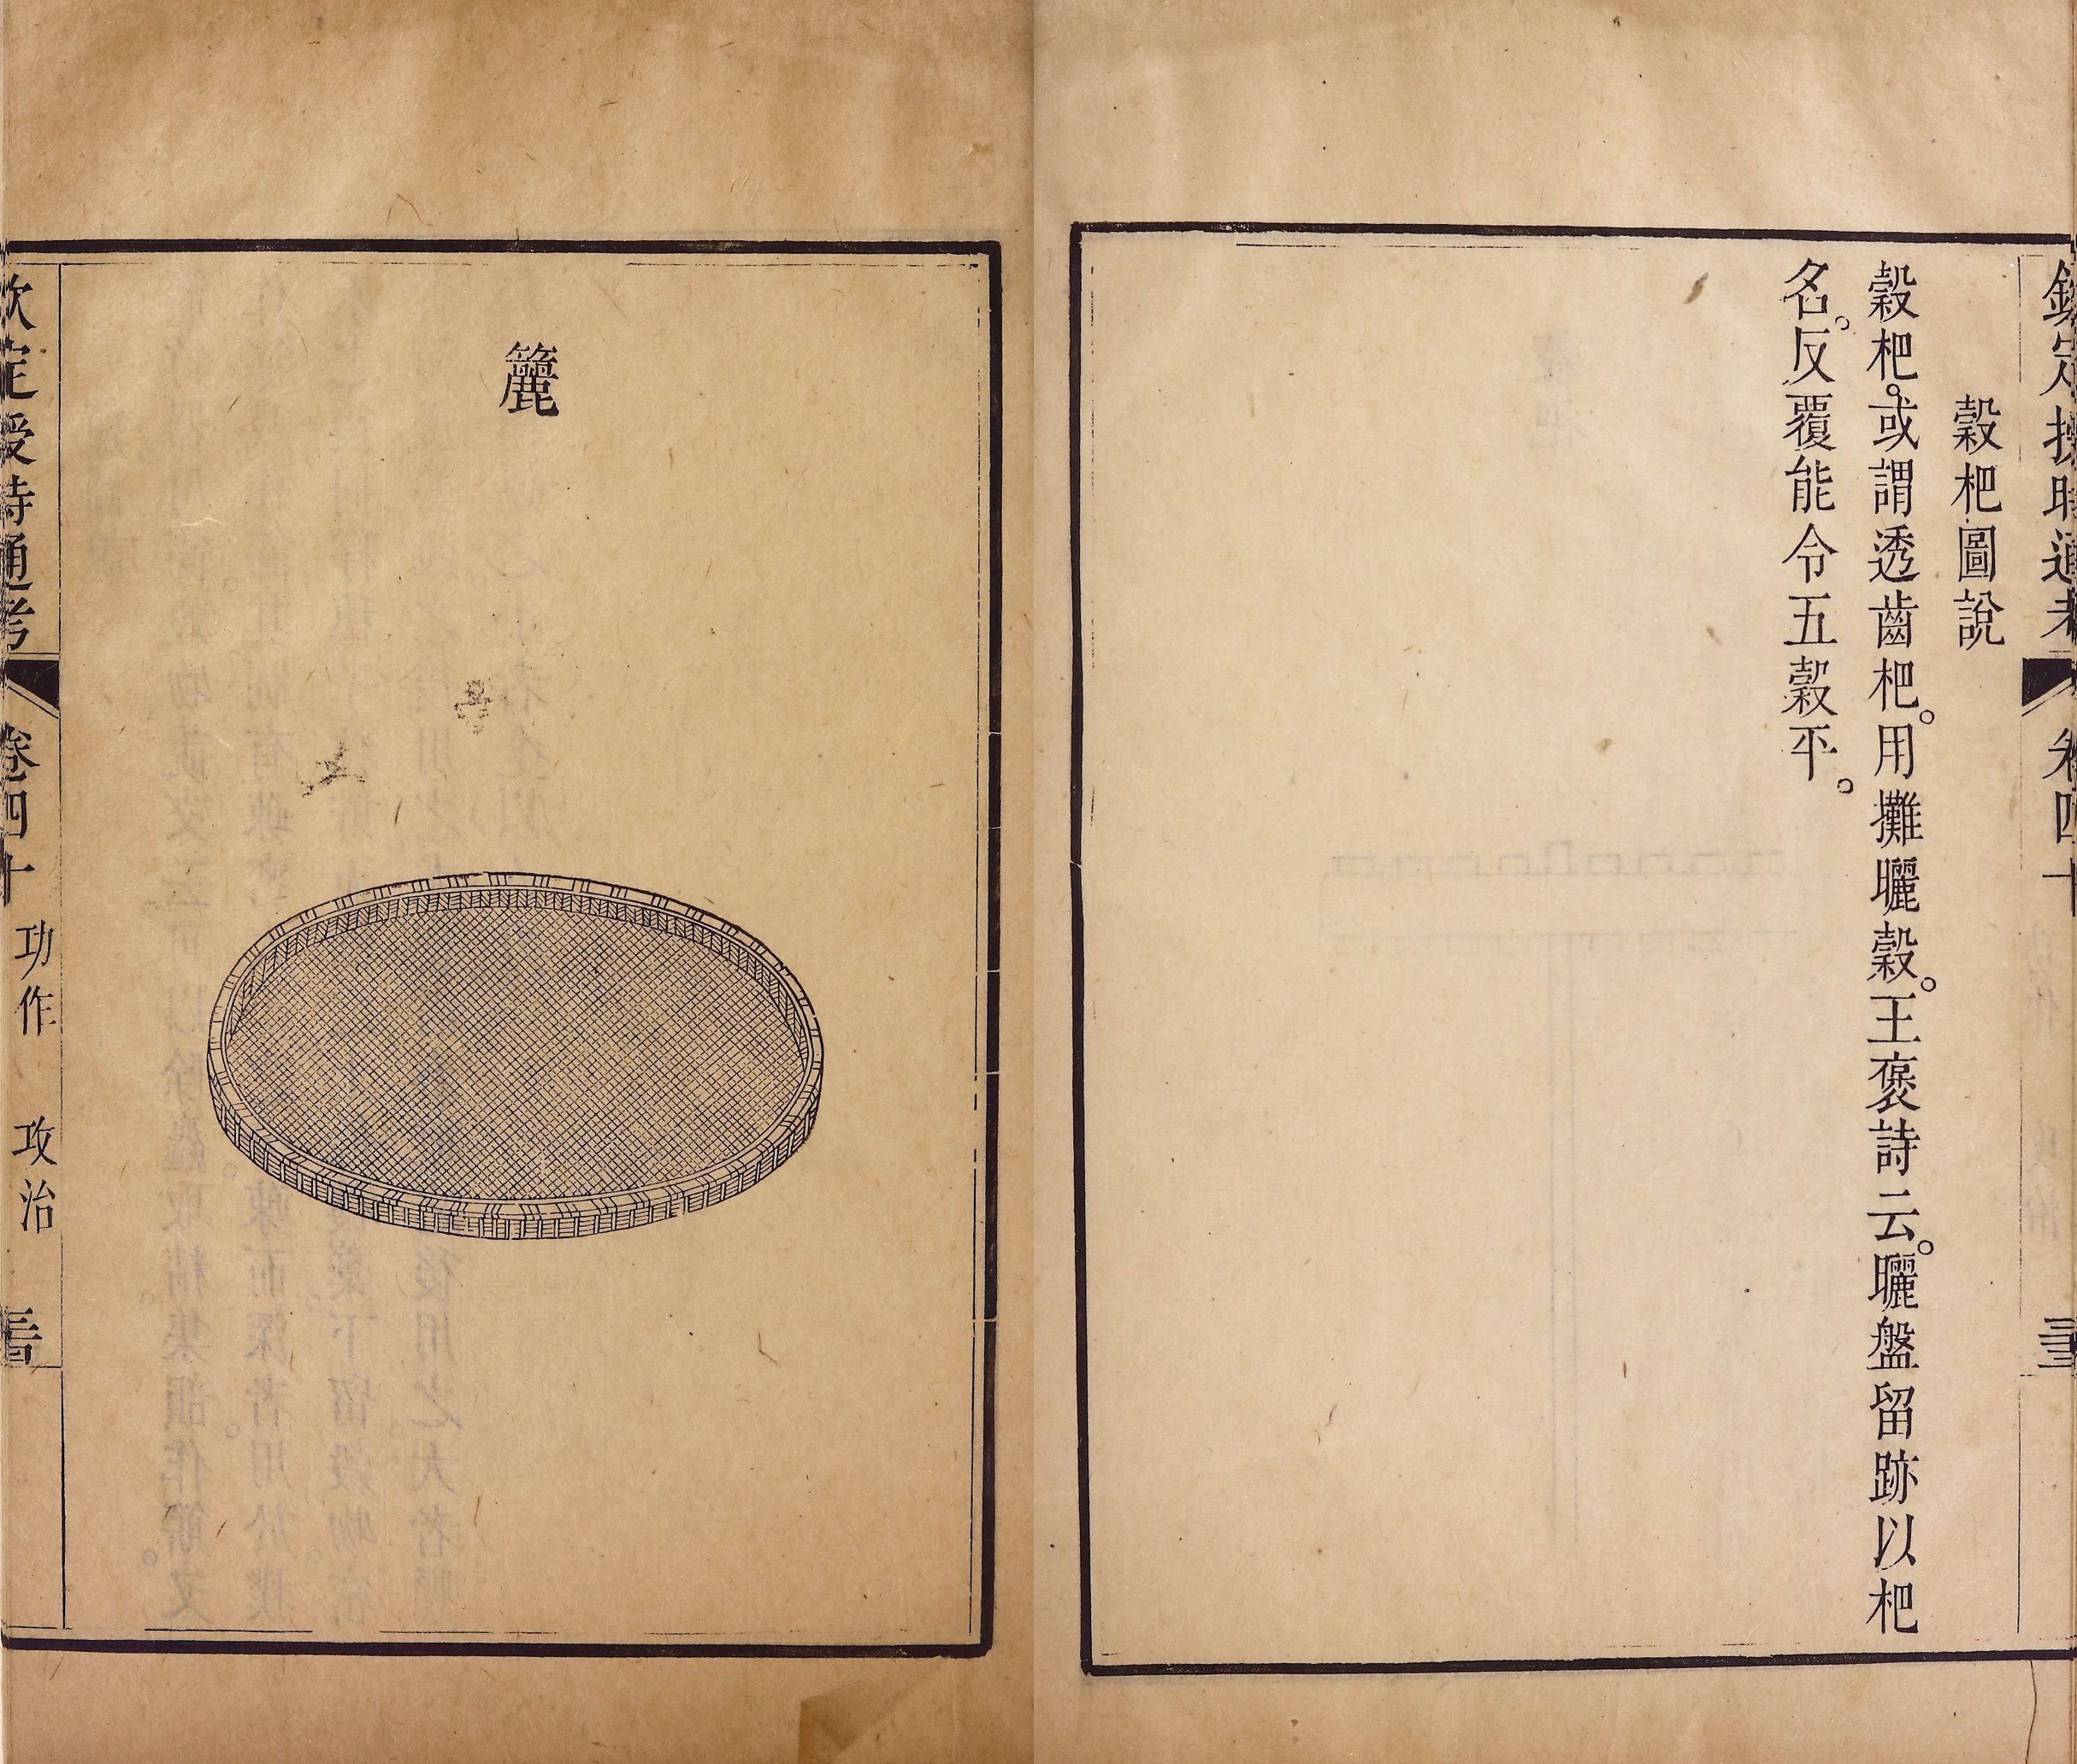 欽定授時通考
卷四十
穀杷圖說
穀杷。或謂透齒杷。用攤曬穀。王褒詩云。曬盤留跡以杷
名。反覆能令五穀平。
籭
欽定授時通考
卷四十
功作
攻治